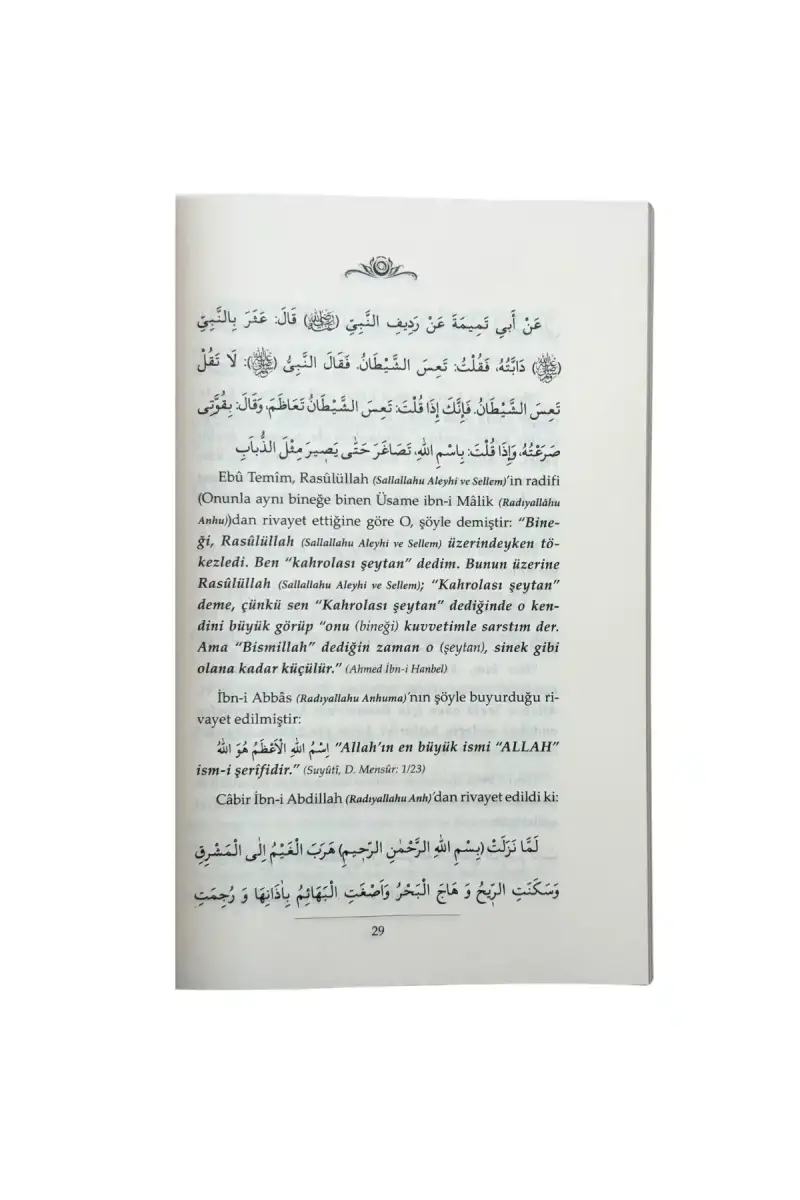 عَنْ أَبِي تَمِيمَةَ عَنْ رَدِيفِ النَّبِيِّ (ﷺ) قَالَ: عَثَرَ بِالنَّبِيِّ
(ﷺ) دَابَّتُهُ، فَقُلْتُ: تَعِسَ الشَّيْطَانُ، فَقَالَ النَّبِىُّ (ﷺ): لَا تَقُلْ
تَعِسَ الشَّيْطَانُ، فَإِنَّكَ إِذَا قُلْتَ: تَعِسَ الشَّيْطَانُ تَعَاظَمَ، وَقَالَ: بِقُوَّتِى
صَرَعْتُهُ، وَإِذَا قُلْتَ: بِاسْمِ اللهِ، تَصَاغَرَ حَتَّى يَصِيرَ مِثْلَ الذُّبَابِ
Ebû Temîm, Rasûlüllah (Sallallahu Aleyhi ve Sellem)'in radifi
(Onunla aynı bineğe binen Üsame ibn-i Mâlik (Radıyallâhu
Anhu))dan rivayet ettiğine göre O, şöyle demiştir: "Bine-
ği, Rasûlüllah (Sallallahu Aleyhi ve Sellem) üzerindeyken tö-
kezledi. Ben "kahrolası şeytan" dedim. Bunun üzerine
Rasûlüllah (Sallallahu Aleyhi ve Sellem); "Kahrolası şeytan"
deme, çünkü sen "Kahrolası şeytan" dediğinde o ken-
dini büyük görüp "onu (bineği) kuvvetimle sarstım der.
Ama "Bismillah" dediğin zaman o (şeytan), sinek gibi
olana kadar küçülür." (Ahmed İbn-i Hanbel)
İbn-i Abbâs (Radıyallahu Anhuma)'nın şöyle buyurduğu ri-
vayet edilmiştir:
اِسْمُ اللهِ الْاَعْظَمُ هُوَ اللهُ "Allah'ın en büyük ismi "ALLAH"
ism-i şerifidir." (Suyûtî, D. Mensûr: 1/23)
Câbir İbn-i Abdillah (Radıyallahu Anh)'dan rivayet edildi ki:
لَمَّا نَزَلَتْ (بِسْمِ اللهِ الرَّحْمٰنِ الرَّحِيمِ) هَرَبَ الْغَيْمُ اِلَى الْمَشْرِقِ
وَسَكَنَتِ الرِّيحُ وَ هَاجَ الْبَحْرُ وَاَصْغَتِ الْبَهَائِمُ بِاٰذَانِهَا وَ رُجِمَتِ
29